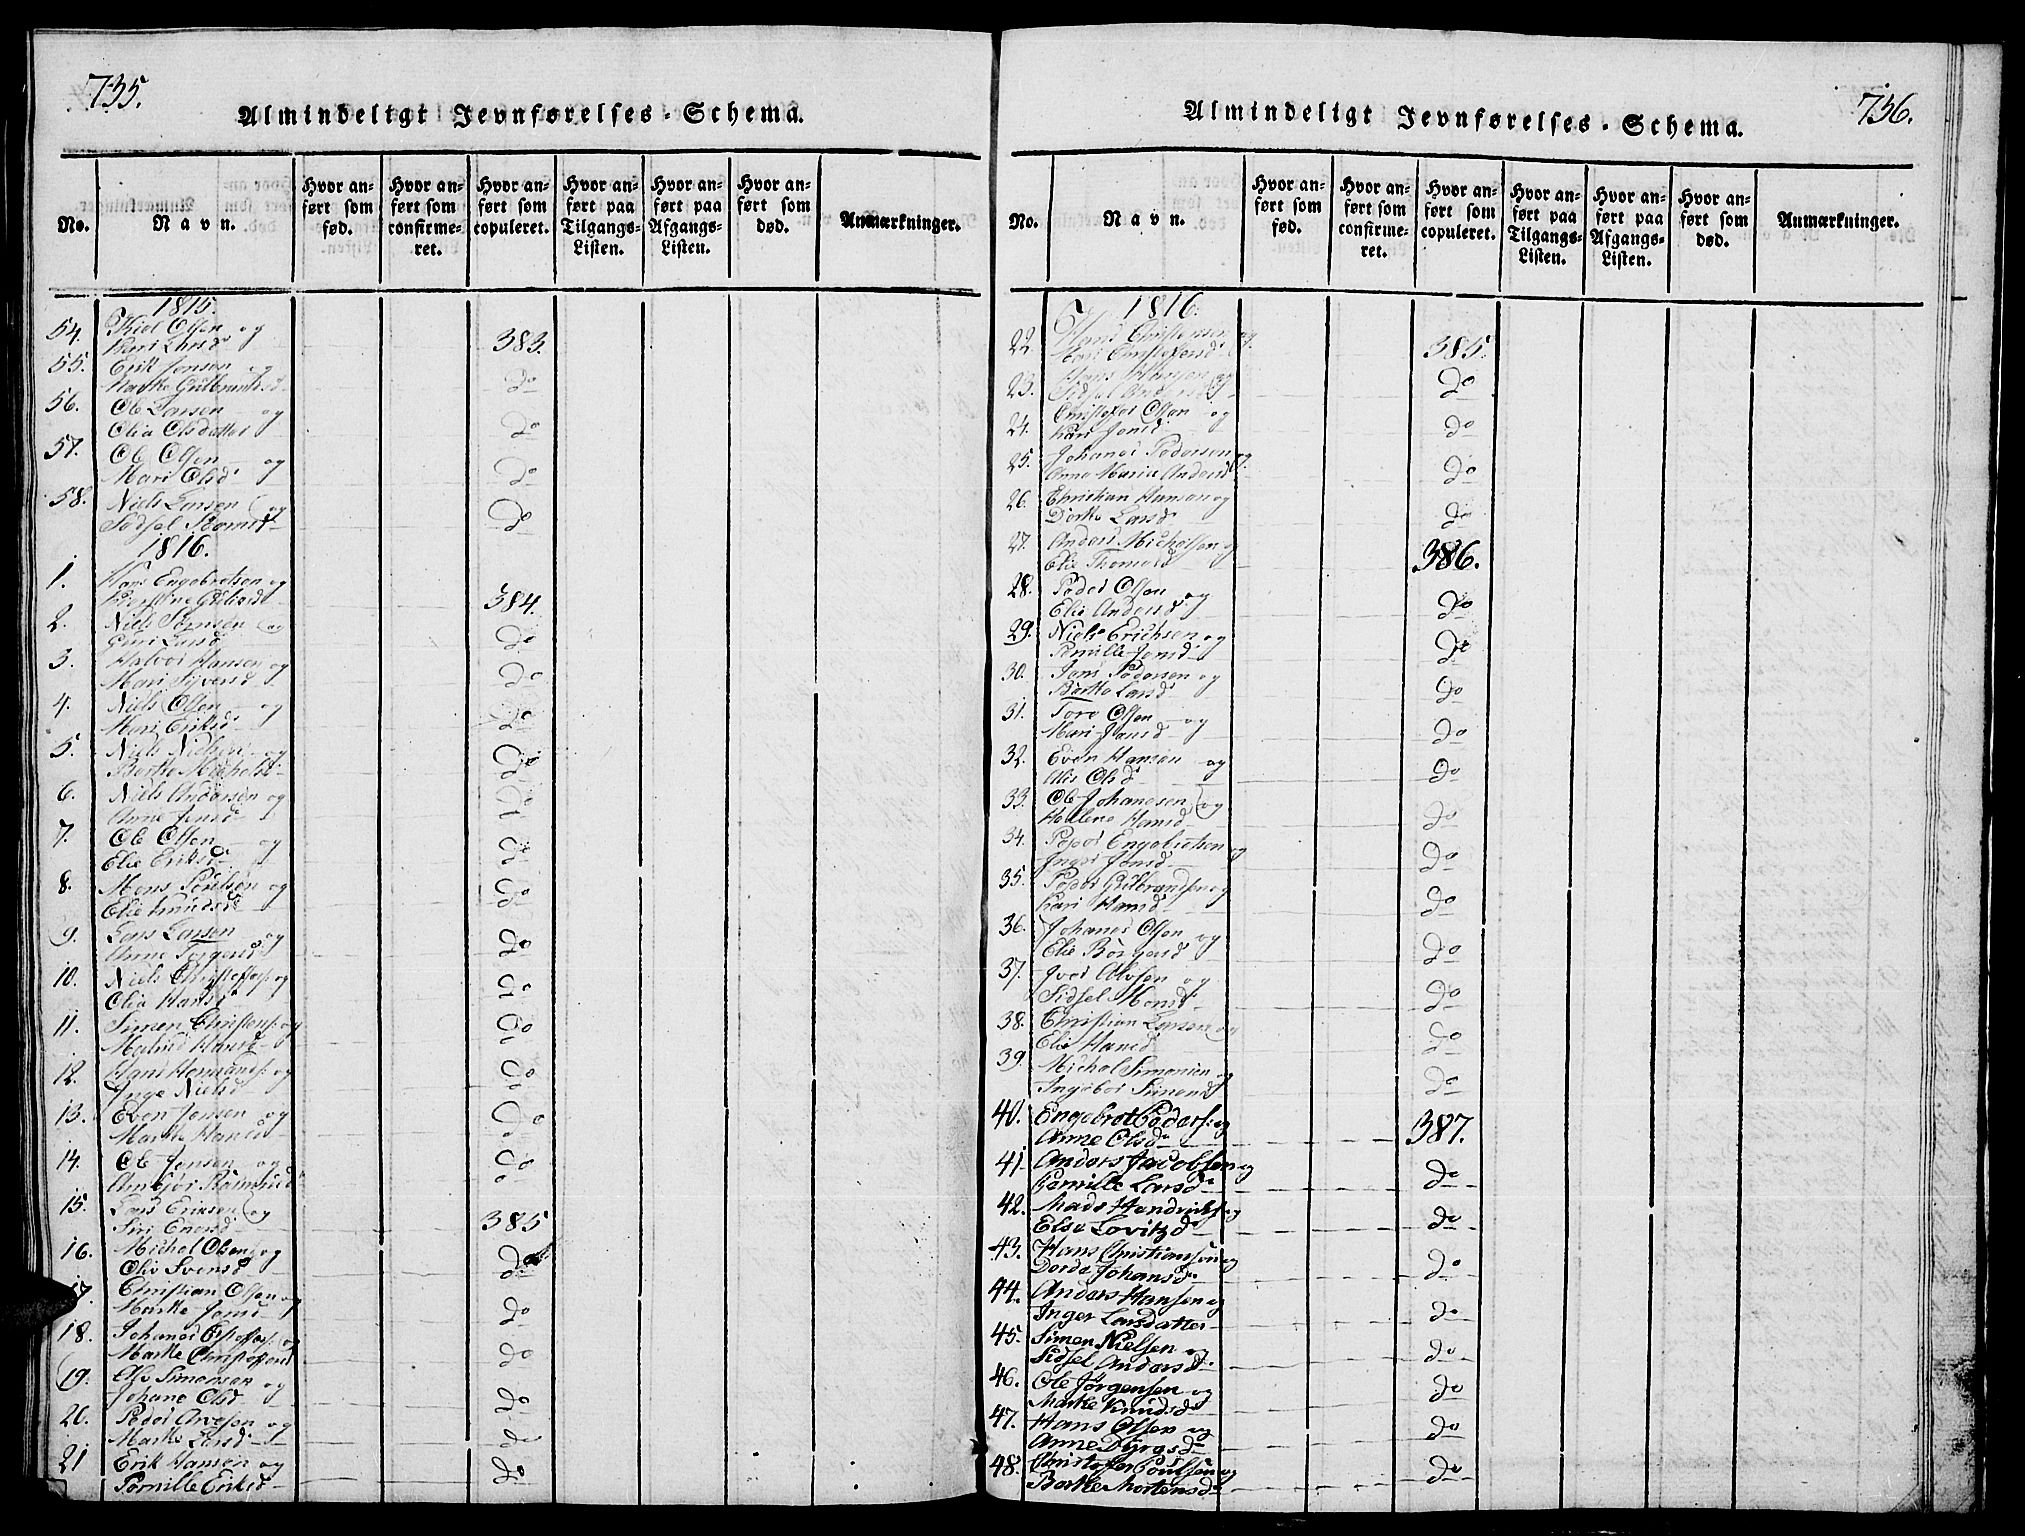 735.
Almindeligt Jevnførelses-Schema.
No.
Navn.
Hvor anført som fød.
Hvor anført som confirmeret.
Hvor anført som copuleret.
Hvor anført paa Tilgangs-Listen.
Hvor anført paa Afgangs-Listen.
Hvor anført som død.
Anmærkninger.
1815.
54. Kiel Olsen og
Kari Larsd 383.
55. Erik Jonsen og
Marthe Gulbransd do
56. Ole Larsen og
Olia Olsdatter do
57. Ole Olsen og
Mari Olsd do
58. Niels Larsen og
Sidsel do
1816.
1. Hans Engebretsen og
Kierstine 384.
2. Niels og
Guri Larsd do
3. Halvor Hansen og
Mari Siversd do
4. Niels Olsen og
Mari Eriksd do
5. Niels Nielsen og
Berthe Michelsd do
6. Niels Andersen og
Anne Jensd do
7. Ole Olsen og
Elie Eriksd do
8. Mons Poulsen og
Elie Knudsd do
9. Lars Larsen og
Anne Torgersd do
10. Niels Christoffers: og
Olia Hansd do
11. Simen Christens: og
Malene Hansd do
12. Hans Hermands: og
Inge Nielsd do
13. Even Jensen og
Marthe Hansd do
14. Ole Jensen og
do
15. Lars Eriksen og
Siri Enersd 385
16. Michel Olsen og
Oliv Svensd do
17. Christian Olsen og
Marthe Jonsd do
18. Johanes og
Marthe Christoffersd do
19. Ole Simensen og
Johane Olsd do
20. Peder Arvesen og
Marthe Larsd do
21 Erik Hansen og
Pernille Eriksd do
756.
Almindeligt Jevnførelses-Schema.
No.
Navn.
Hvor anført som fød.
Hvor anført som confirmeret.
Hvor anført som copuleret.
Hvor anført paa Tilgangs-Listen.
Hvor anført paa Afgangs-Listen.
Hvor anført som død.
Anmærkninger.
1816.
22. Hans Christensen og
Mari Christophersd 385.
23. Hans og
Sidsel Andersd do
24. Christofer Olsen og
Kari Jensd do
25. Johanes Pedersen og
Anne Maria Andersd do
26. Christian Hansen og
Dorthe Larsd do
27. Anders Michelsen og
Elie Thomasd 386.
28. Peder Olsen og
Elie Andersd do
29. Niels Erichsen og
Pernille Jonsd do
30. Jens Pedersen og
Berthe Larsd do
31. Tore Olsen og
Mari Jansd do
32. Even Hansen og
Alis Olsd do
33. Ole Johanesen og
Hellene Hansd do
34. Peder Engebretsen og
Inger Jensd do
35. Peder Gulbrandsen og
Kari Hansd do
36. Johanes Olsen og
Elie Børgersd do
37. Iver Alvsen og
Sidsel Monsd do
38. Christian Larsen og
Elie Hansd do
39. Michel Simensen og
Ingebor Simensd do
40. Engebret Peders: og
Anne Olsd 387.
41. Anders Jacobsen og
Pernille Larsd do
42. Mads Hendrichs: og
Else Lovitzd do
43. Hans Christiansen og
Dorde Johansd do
44. Anders Hansen og
Inger Larsdatter do
45. Simen Nielsen og
Sidsel Andersd do
46. Ole Jørgensen og
Marthe Knudsd do
47. Hans Olsen og
Anne Dyrgsd do
48. Christofer Poulsen og
Berthe Mortensd do